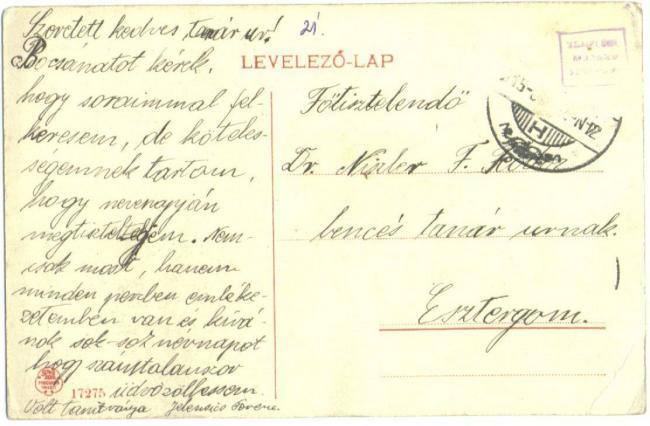 Szeretett kedves tanár úr!
21.
Bocsánatot kérek,
hogy soraimmal fel-
keresem, de köteles-
ségemnek tartom,
hogy nevenapján
megtiszteljem. Nem-
csak most, hanem
minden percben emléke-
zetemben van és kívá-
nok sok-sok névnapot
hogy számtalanszor
üdvözölhessem.
Volt tanítványa Ferenc
17275
LEVELEZŐ-LAP
Főtisztelendő
Dr. F.
bencés tanár urnak.
Esztergom.